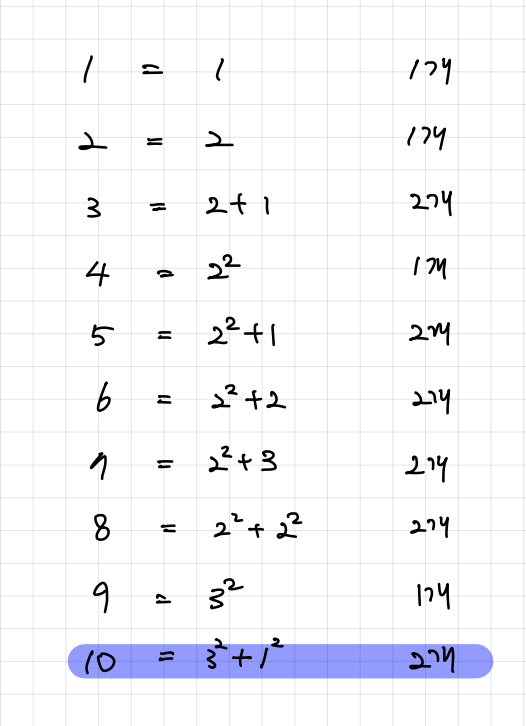 1 = 1 1개
2 = 2 1개
3 = 2+1 2개
4 = 2² 1개
5 = 2²+1 2개
6 = 2²+2 2개
7 = 2²+3 2개
8 = 2²+2² 2개
9 = 3² 1개
10 = 3²+1² 2개